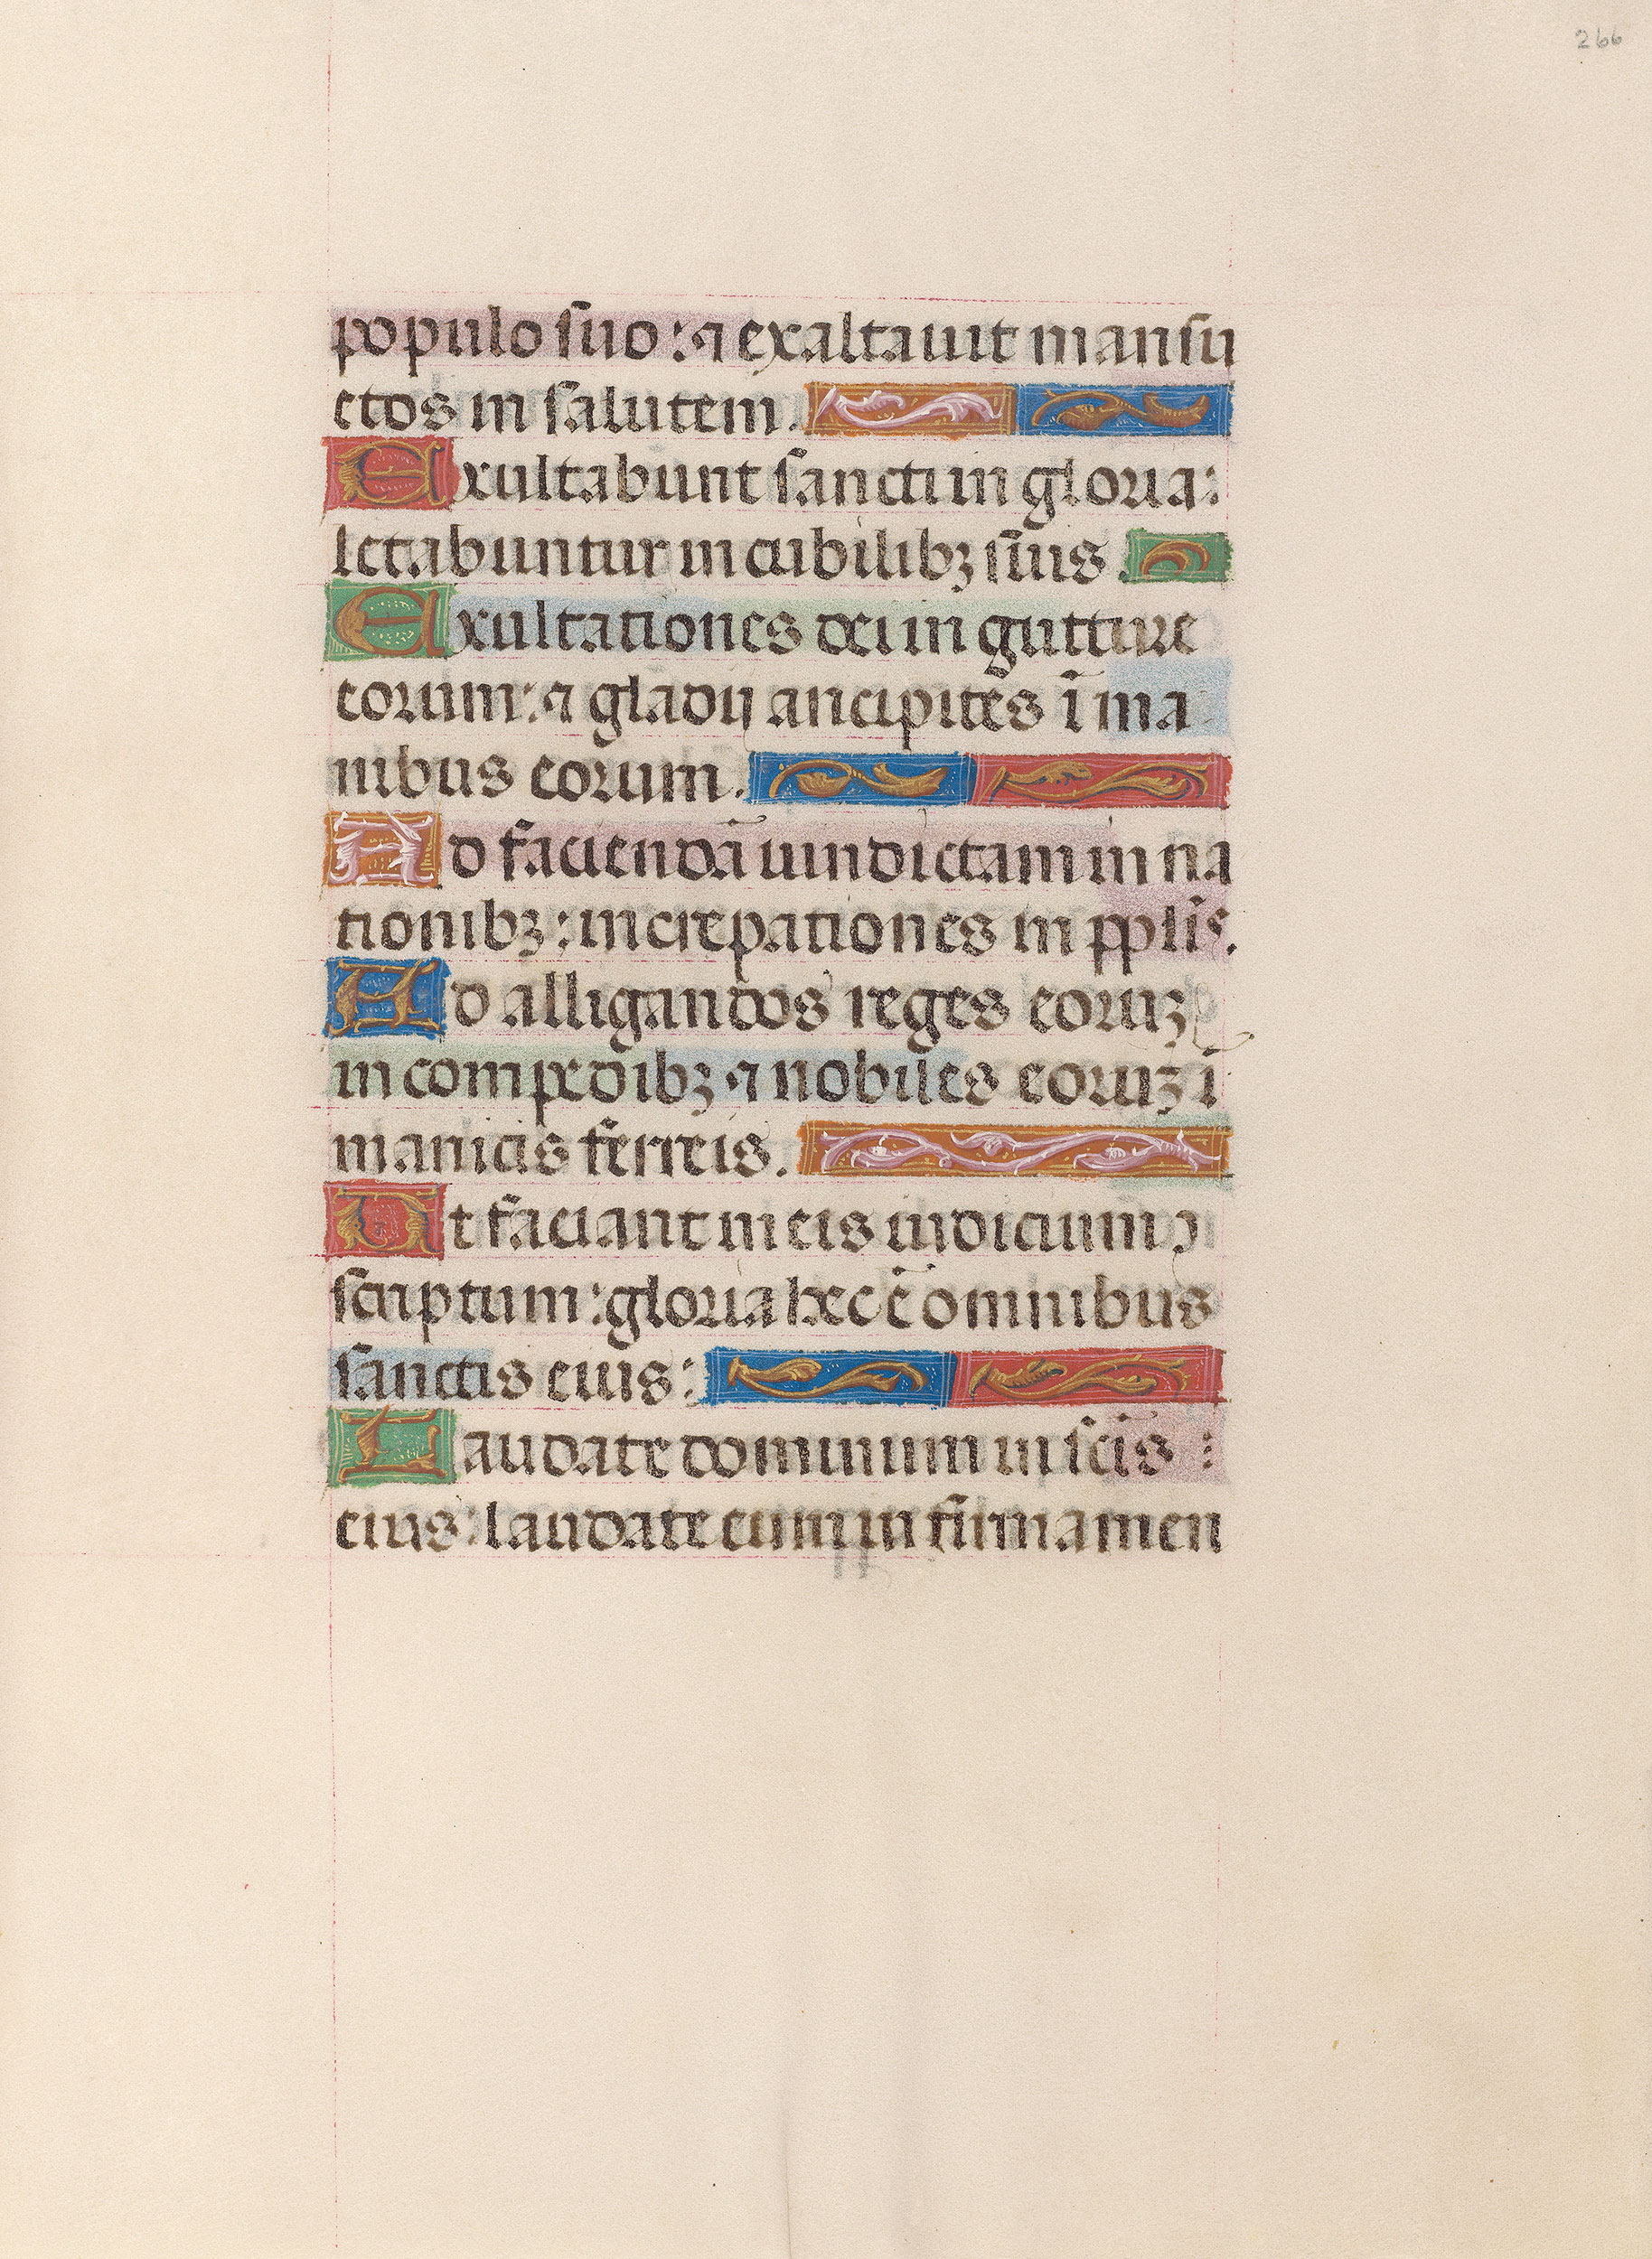 266
populo suo : ⁊ exaltauit mansu
etos in salutem .
Exultabunt sancti in gloria :
letabuntur in cubilibꝫ suis .
Exultationes dei in gutture
eorum : ⁊ gladij ancipites ī ma
nibus eorum .
Ad faciendā uindictam in na
tionibꝫ : increpationes in pplis .
Ad alligandos reges eoruꝫ
in compedibꝫ ⁊ nobiles eoruꝫ ī
manicis ferreis .
Ut faciant in eis iudicium ↄ
scriptum : gloria hec ē omnibus
sanctis eius :
Laudate dominum in scīs :
eius : laudate eum in firmamen